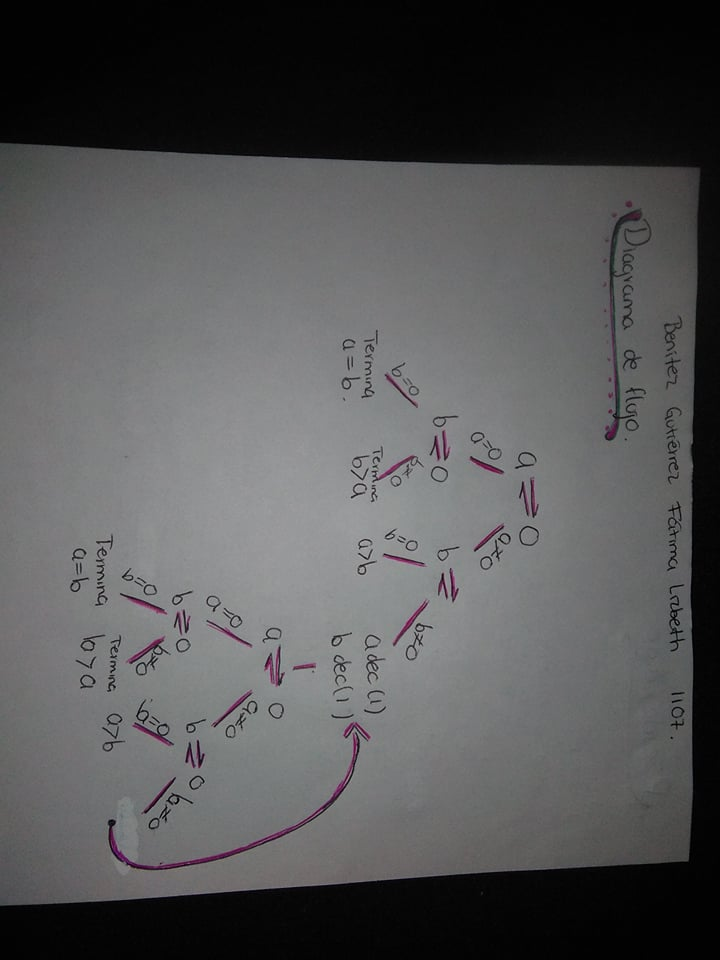 Benítez Gutiérrez Fátima Lizbeth 1107.
Diagrama de flujo.
a ⇌ 0
a=0 a≠0
b ⇌ 0 b ⇌
b=0 b≠0 b=0 b≠0
Termina a=b. Termina b>a a>b a dec(1)
b dec(1)
a ⇌ 0
a=0 a≠0
b ⇌ 0 b ⇌ 0
b=0 b≠0 b=0 b≠0
Termina a=b Termina b>a a>b